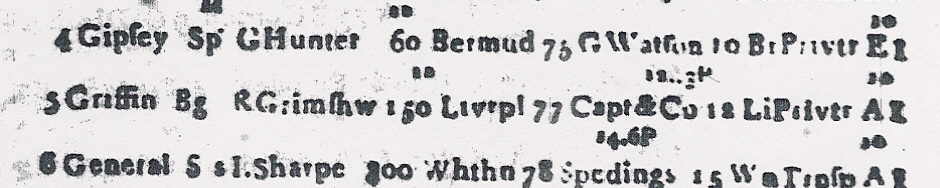 4 Gipſey Sp G Hunter 60 Bermud 75 G Watſun 10 Br Privtr E 1
5 Griffin Bg R Grimſhw 150 Livrpl 77 Capt & Co 12 Li Privtr A 1
14.6P
6 General S s I. Sharpe 300 Whthn 78 Spedings 15 Wn Trnſp A 1